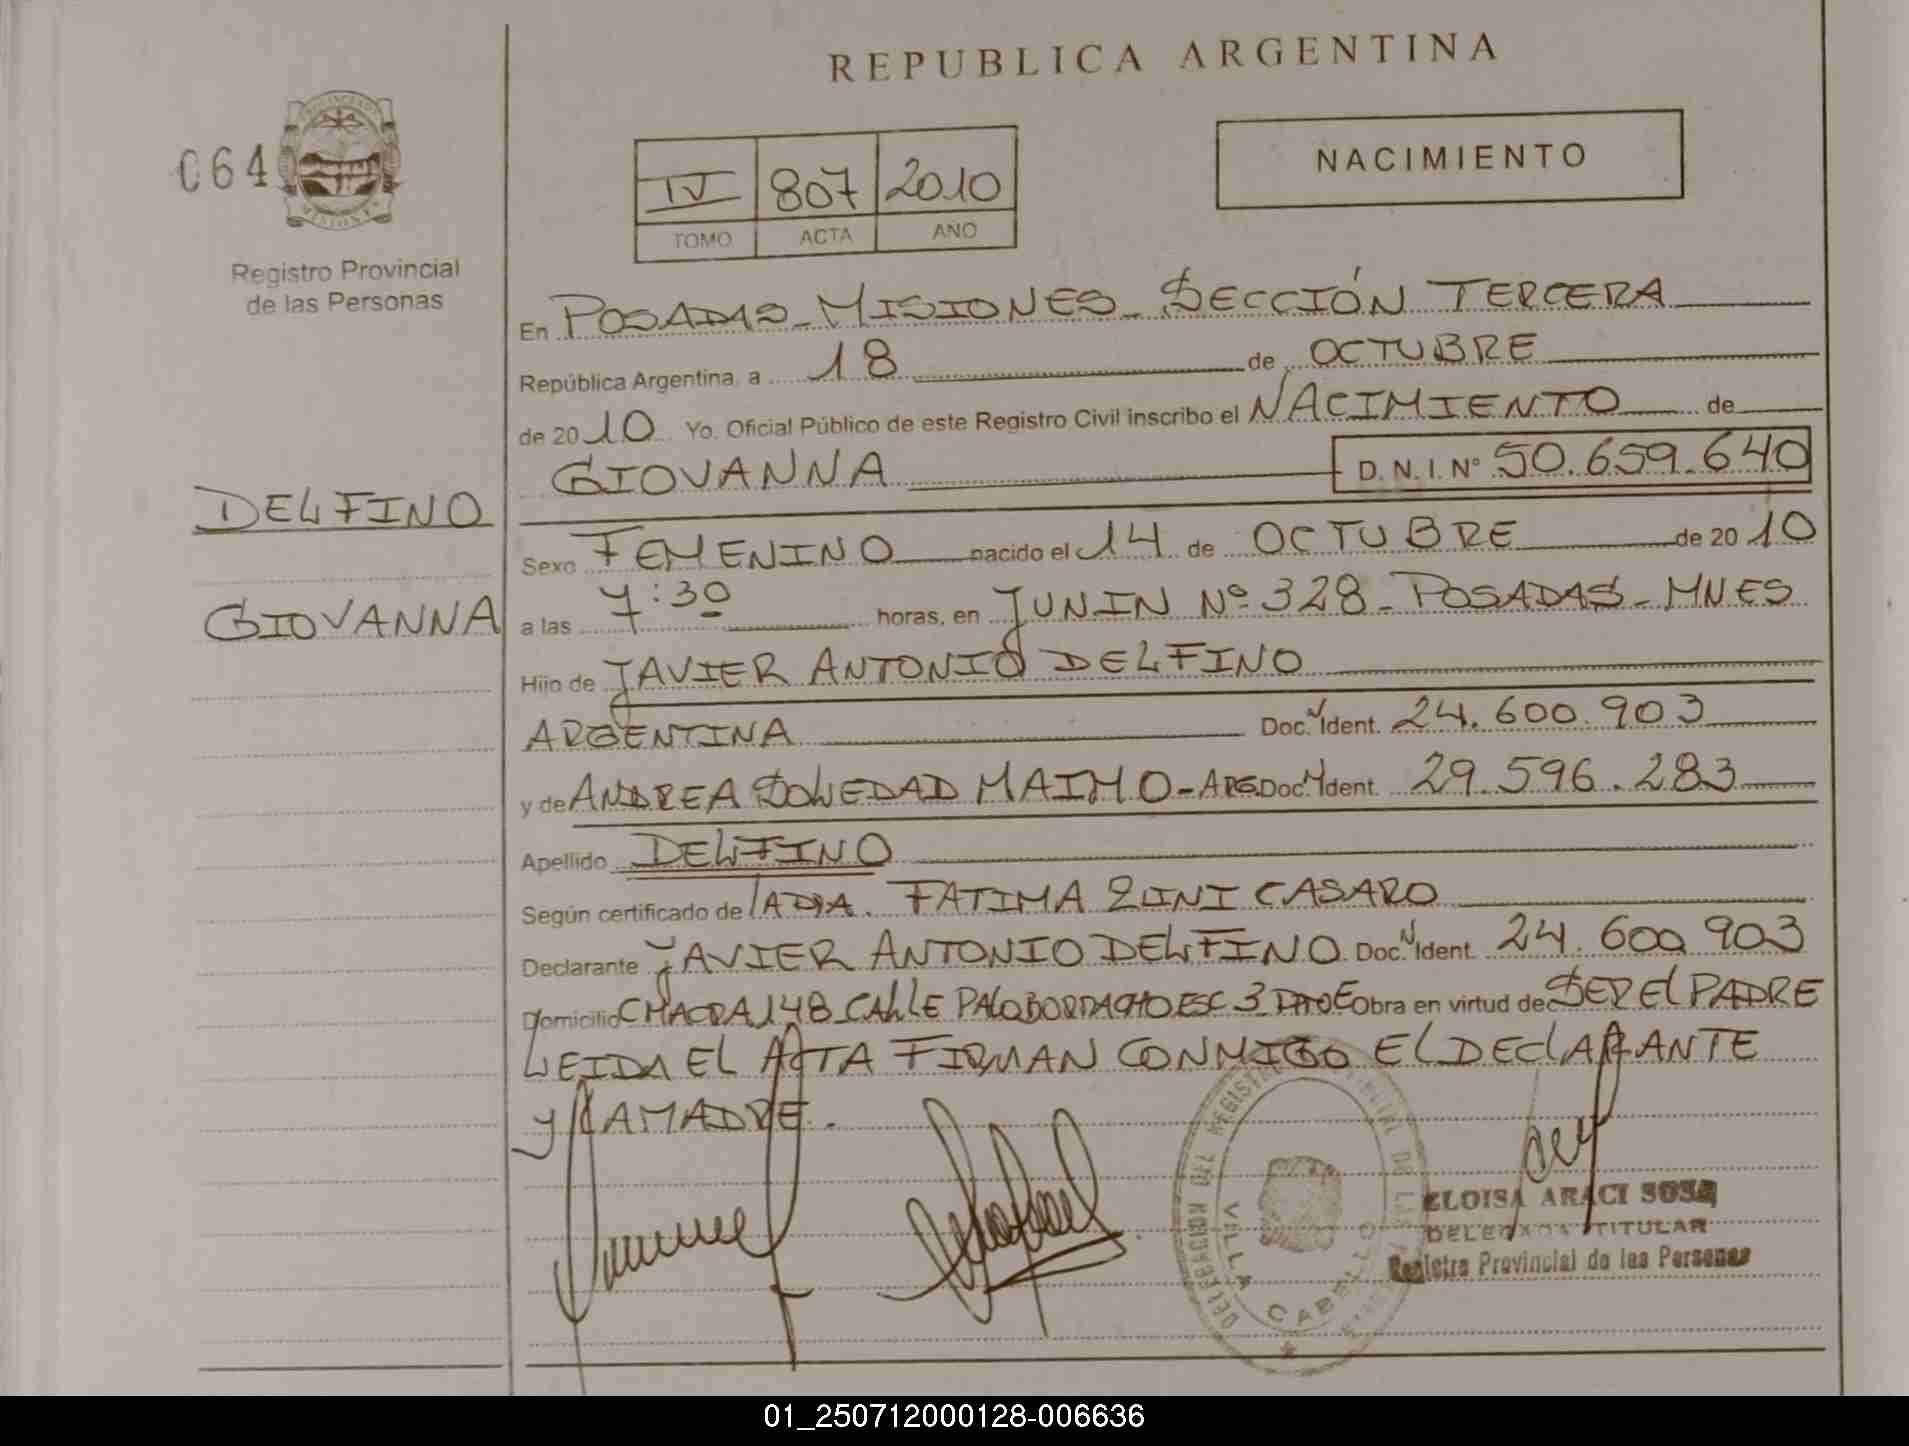 REPUBLICA ARGENTINA
064
NACIMIENTO
IV 807 2010
TOMO ACTA AÑO
Registro Provincial
de las Personas
En POSADAS_MISIONES_SECCIÓN TERCERA
República Argentina, a 18 de OCTUBRE
de 2010 Yo. Oficial Público de este Registro Civil inscribo el NACIMIENTO de
GIOVANNA D.N.I.Nº 50.659.640
DELFINO
GIOVANNA
Sexo FEMENINO nacido el 14 de OCTUBRE de 2010
a las 7:30 horas, en JUNIN Nº 328_POSADAS_MNES
Hijo de JAVIER ANTONIO DELFINO
ARGENTINA Doc. Ident. 24.600.903
y de ANDREA SOLEDAD MAIMO-ARG Doc. Ident. 29.596.283
Apellido DELFINO
Según certificado de FATIMA ZUNI CASARO
Declarante JAVIER ANTONIO DELFINO Doc. Ident. 24.600.903
Domicilio CHACRA 148_CALLE PALOBORRACHO ESC 3_DPTO E Obra en virtud de SER El PADRE
LEIDA EL ACTA FIRMAN CONMIGO El DEClARANTE
y lA MADRE.
DELEGACION DEL REGISTRO PROVINCIAL DE LAS
VILLA CABELLO
ELOISA ARACI SOSA
DELEGADA TITULAR
Registro Provincial de las Personas
01_250712000128-006636